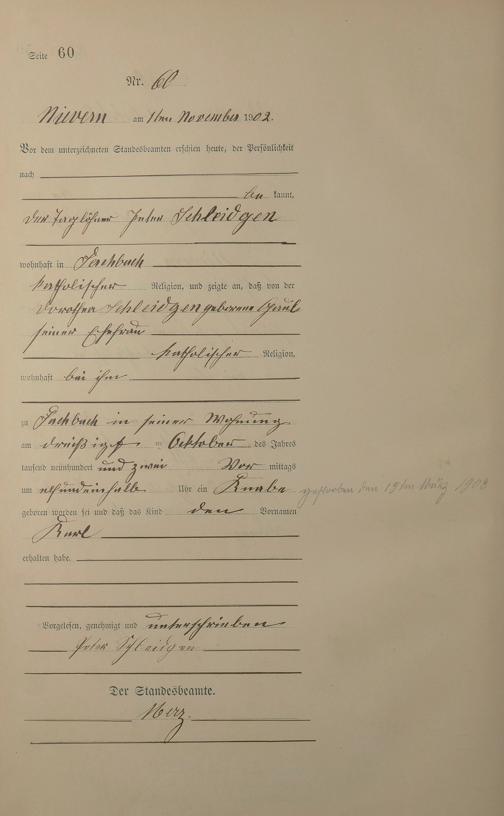 Seite 60
Nr. 60
Nievern am 1ten November 1902.
Vor dem unterzeichneten Standesbeamten erschien heute, der Persönlichkeit
nach
be kannt,
der Taglöhner Peter Schleidgen
wohnhaft in Fachbach
katholischer Religion, und zeigte an, daß von der
Dorothea Schleidgen geborene Gaul
seiner Ehefrau
katholischer Religion,
wohnhaft bei ihm
zu Fachbach in seiner Wohnung
am dreißigst en Oktober des Jahres
tausend neunhundert und zwei Vor mittags
um elfundeinhalb Uhr ein Knabe gestorben den 19ten März 1903
geboren worden sei und daß das Kind den Vornamen
Karl
erhalten habe.
Vorgelesen, genehmigt und unterschrieben
Peter Schleidgen
Der Standesbeamte.
Merz.